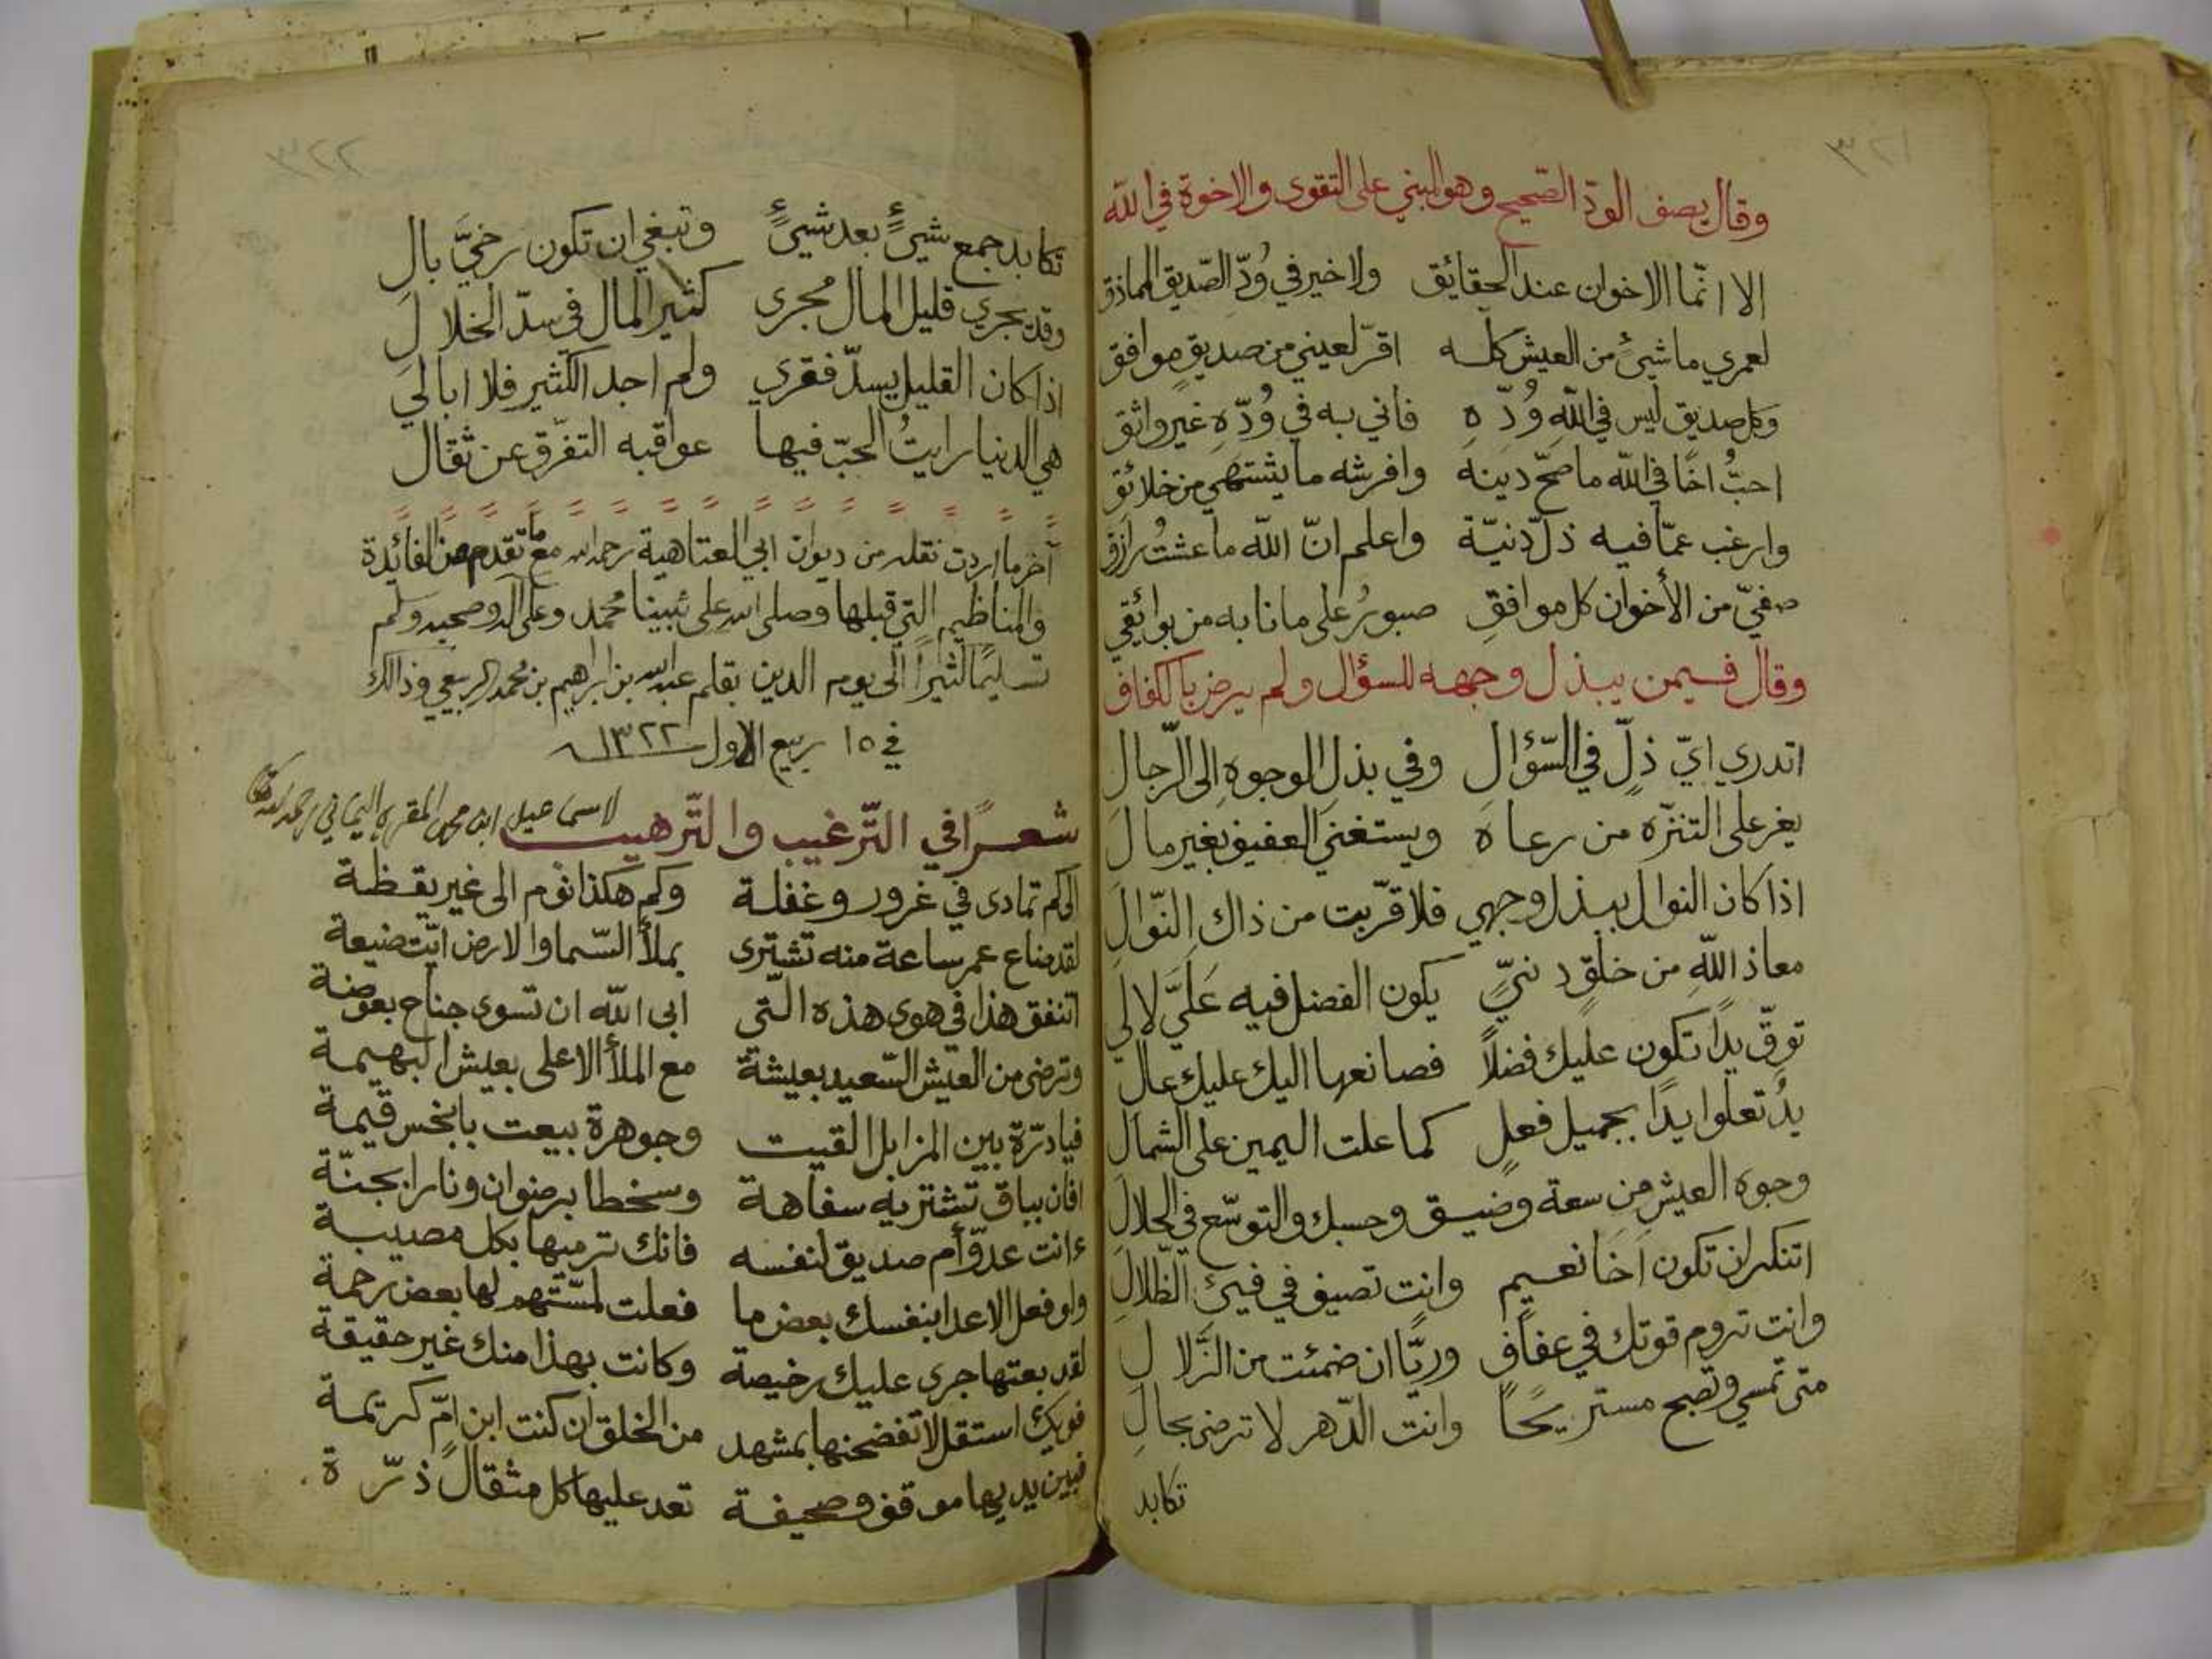 ٣٢١
وقال يصف الودّ الصّحيح وهو المبني على التقوى والاخوة في الله
الا انّما الاخوان عند الحقائق ولا خير في وُدّ الصّديق المماذق
لعمري ما شيئ من العيش كلّه اقرّ لعيني من صديقٍ موافق
وكل صديق ليس في اللهِ وُدّهِ فأني به في وُدّهِ غير واثق
احبُّ اخًا في الله ما صحّ دينه وافرشه ما يشتهي من خلائق
وارغب عمّا فيه ذلّ دنيّة واعلم انّ الله ما عشتُ رازق
صفيّ من الأخوان كل موافقِ صبورٌ على ما نابه من بوائقي
وقال فيمن يبذل وجهه للسؤال ولم يرض بالكفاف
اتدري ايّ ذلٍّ في السّؤال وفي بذل الوجوهِ الى الرّجال
يغر على التنزّه من رعاه ويستغني العفيف بغير مال
اذا كان النوال ببذل وجهي فلا قرّبت من ذاك النّوالِ
معاذ اللهِ من خلقٍ دنيٍّ يكون الفضل فيه عَلَيَّ لا لي
توقّ يدًا تكون عليك فضلاً فصانعها اليك عليك عال
يدٌ تعلوا يدًا بجميل فعلٍ كما علت اليمين على الشمال
وجوه العيش من سعة وضيق وحسبك والتوسّع في الحلال
اتنكر ان تكون اخا نعيم وانت تصيف في فيئ الظّلالِ
وانت تروم قوتك في عفافٍ وريًّا ان ضمئت من الزّلالِ
متى تمسي وتصبح مستريحًا وانت الدّهر لا ترضى بحالِ
تكابد
٣٢٢
تكابد جمع شيئٍ بعد شيئٍ وتبغي ان تكون رخيَّ بالِ
وقد يجري قليل المال مجرى كثير المال في سدّ الخلالِ
اذا كان القليل يسدّ فقري ولم اجد الكثير فلا ابالي
هي الدنيا رايتُ الحبّ فيها عواقبه التفرّق عن ثقال
آخر ما اردت نقله من ديوان ابي العتاهية رحمه الله مع ما تقدم من الفائدة
والمناظيم التي قبلها وصلى الله على نبينا محمد وعلى آله وصحبه وسلم
تسليمًا كثيرًا الى يوم الدين بقلم عبد الله بن ابراهيم بن محمد الربيعي وذالك
في ١٥ ربيع الاول ١٣٢٢
شعرًا في التّرغيب والتّرهيب لاسماعيل ابن محمد المقري اليماني رحمه الله تعالى
الى كم تمادى في غرور وغفلة وكم هكذا نوم الى غير يقظة
لقد ضاع عمر ساعة منه تشترى بملأ السّما والارض ايّت ضيعة
اتنفق هذا في هوى هذه الّتي ابى الله ان تسوى جناح بعوضة
وترضى من العيش السّعيد بعيشة مع الملأ الاعلى بعيش البهيمة
فيا درّة بين المزابل القيت وجوهرة بيعت بابخس قيمة
افان بباق تشتريه سفاهة وسخطا برضوان ونارا بجنّة
ءانت عدوّ أم صديق لنفسه فانك ترميها بكل مصيبة
ولو فعل الاعدا بنفسك بعض ما فعلت لمسّتهم لها بعض رحمة
لقد بعتها جرى عليك رخيصة وكانت بهذا منك غير حقيقة
فويك استقل لا تفضحنها بمشهد من الخلق ان كنت ابن امّ كريمة
فبين يديها موقف وصحيفة تعد عليها كل مثقال ذرّة